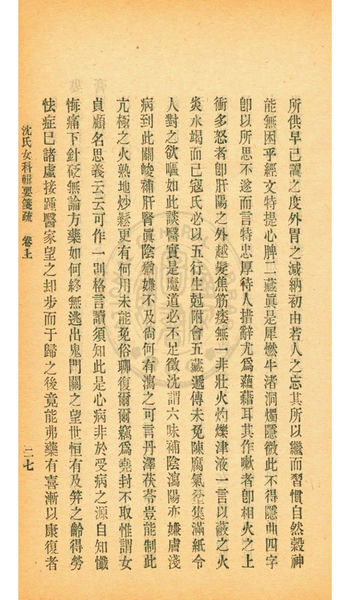 所供早已置之度外胃之減納初由若人之忘其所以繼而習慣自然穀神
能無困乎經文特提心脾二藏眞是犀燃牛渚洞燭隱微此不得隱曲四字
卽以所思不遂而言特忠厚待人措辭尤爲蘊藉耳其作嗽者卽相火之上
衝多怒者卽肝陽之外越變焦筋痿無一非壯火灼爍津液一言以蔽之火
炎水竭而已寇氏必以五行生尅附會五藏遞傳未免陳腐氣滿紙令
人對之欲嘔如此談醫實是魔道必不足徵沈謂六味補陰瀉陽亦嫌膚淺
病到此關峻補肝腎眞陰猶嫌不及尙何有瀉之可言丹澤茯苓豈能制此
亢極之火熟地炒鬆更有何用未能免俗聊復爾爾竊爲堯封不取惟謂女
貞顧名思義云云可作一則格言讀須知此是心病非於受病之源自知懺
悔痛下針砭無論方藥如何終無逃出鬼門關之望世恒有及笄之齡得勞
怯症已諸虛接踵醫家望之却步而于歸之後竟能弗藥有喜漸以康復者
沈氏女科輯要箋疏 卷上 二七